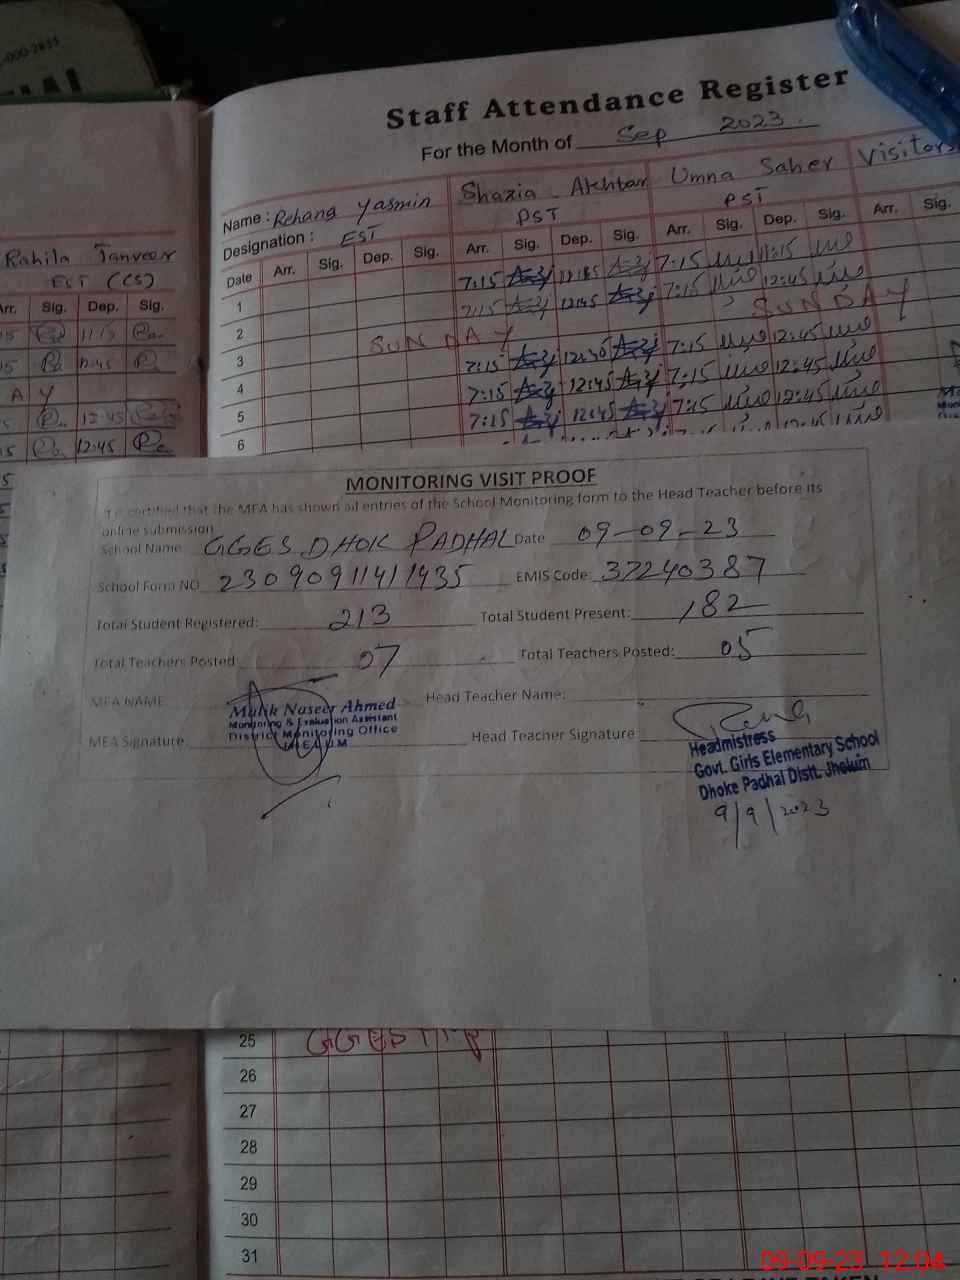 -000-2835
Staff Attendance Register
For the Month of Sep 2023.
Name: Rehana Yasmin Shazia Akhtar Umna Saher Visitors
Designation: EST PST PST
Date Arr. Sig. Dep. Sig. Arr. Sig. Dep. Sig. Arr. Sig. Dep. Sig. Arr. Sig.
Rahila Tanveer
EST (CS)
Arr. Sig. Dep. Sig.
11:15
12:45
A Y
12:45
12:45
1 7:15 7:15 11:15
2 7:15 12:45 7:15 12:45
3 SUNDAY SUNDAY
4 7:15 12:30 7:15 12:45
5 7:15 12:45 7:15 12:45
6 7:15 12:45 7:15 12:45
MONITORING VISIT PROOF
It is certified that the MEA has shown all entries of the School Monitoring form to the Head Teacher before its
online submission
School Name GGES DHOK PADHAL Date 09-09-23
School Form NO 23090911411435 EMIS Code: 37240387
Total Student Registered: 213 Total Student Present: 182
Total Teachers Posted: 07 Total Teachers Posted: 05
MEA NAME Head Teacher Name:
Malik Naseer Ahmed
Monitoring & Evaluation Assistant
District Monitoring Office
JHELUM
MEA Signature: Head Teacher Signature:
Headmistress
Govt. Girls Elementary School
Dhoke Padhal Distt. Jhelum
9/9/2023
25
26
27
28
29
30
31
09-09-23 12:04